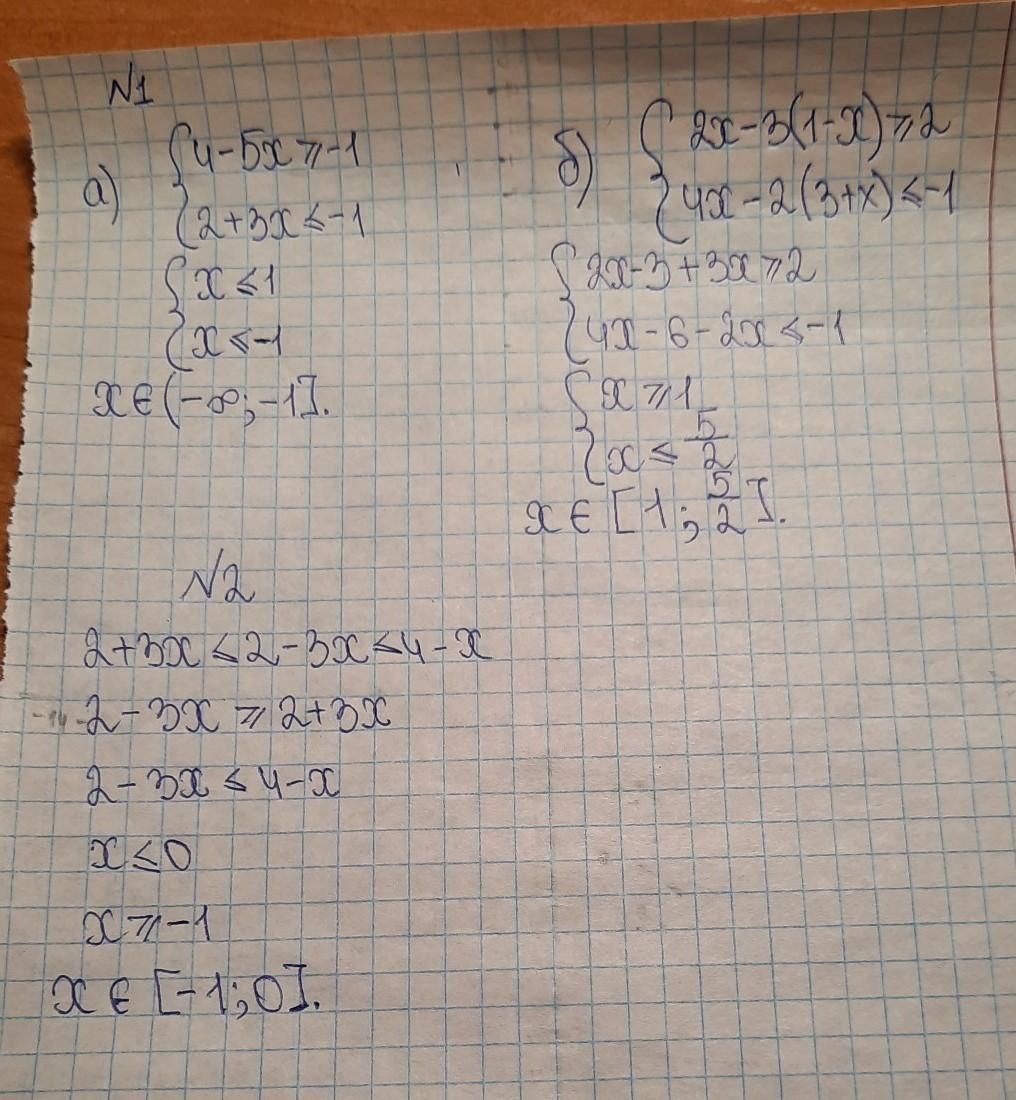 N1
а) { 4-5x ⩾ -1
{ 2+3x ⩽ -1
{ x ⩽ 1
{ x ⩽ -1
x ∈ (-∞; -1].
б) { 2x-3(1-x) ⩾ 2
{ 4x-2(3+x) ⩽ -1
{ 2x-3+3x ⩾ 2
{ 4x-6-2x ⩽ -1
{ x ⩾ 1
{ x ⩽ 5/2
x ∈ [1; 5/2].
N2
2+3x ⩽ 2-3x ⩽ 4-x
2-3x ⩾ 2+3x
2-3x ⩽ 4-x
x ⩽ 0
x ⩾ -1
x ∈ [-1; 0].